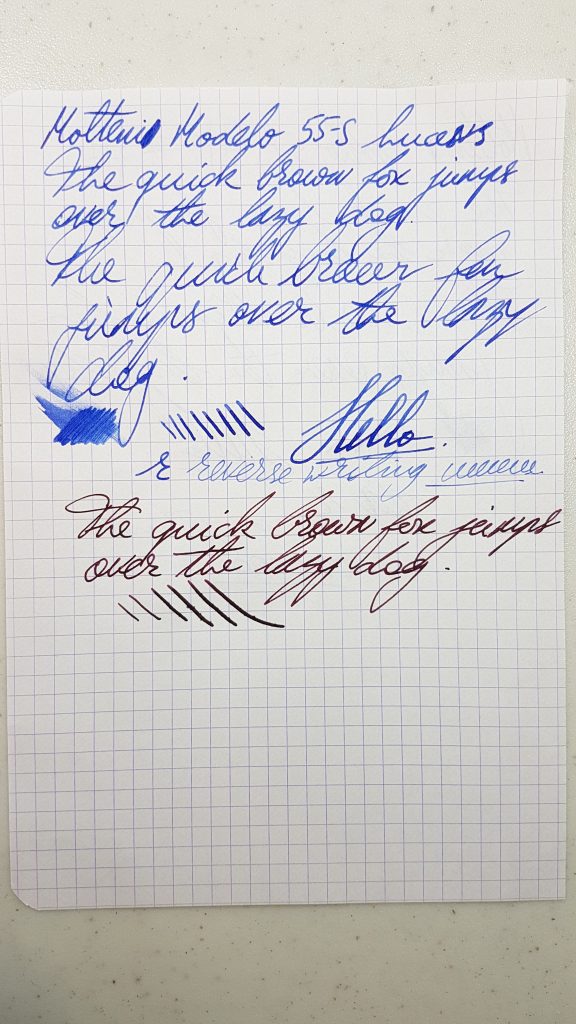 Molteni Modelo 55-S
The quick brown fox jumps
over the lazy dog.
The quick brown fox
jumps over the lazy
dog.
Hello.
r reverse writing
The quick brown fox jumps
over the lazy dog.